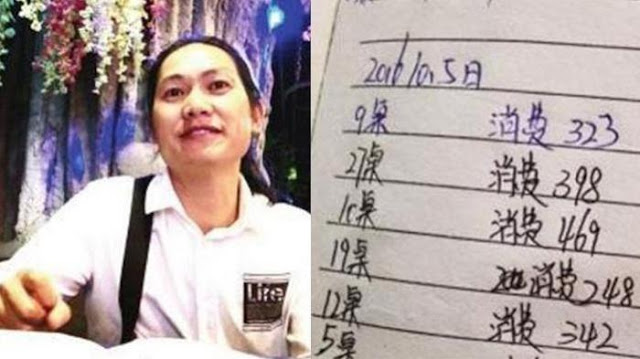 Life
2016.10.5日
9桌 消费 323
27桌 消费 398
10桌 消费 469
19桌 消费 248
12桌 消费 342
5桌